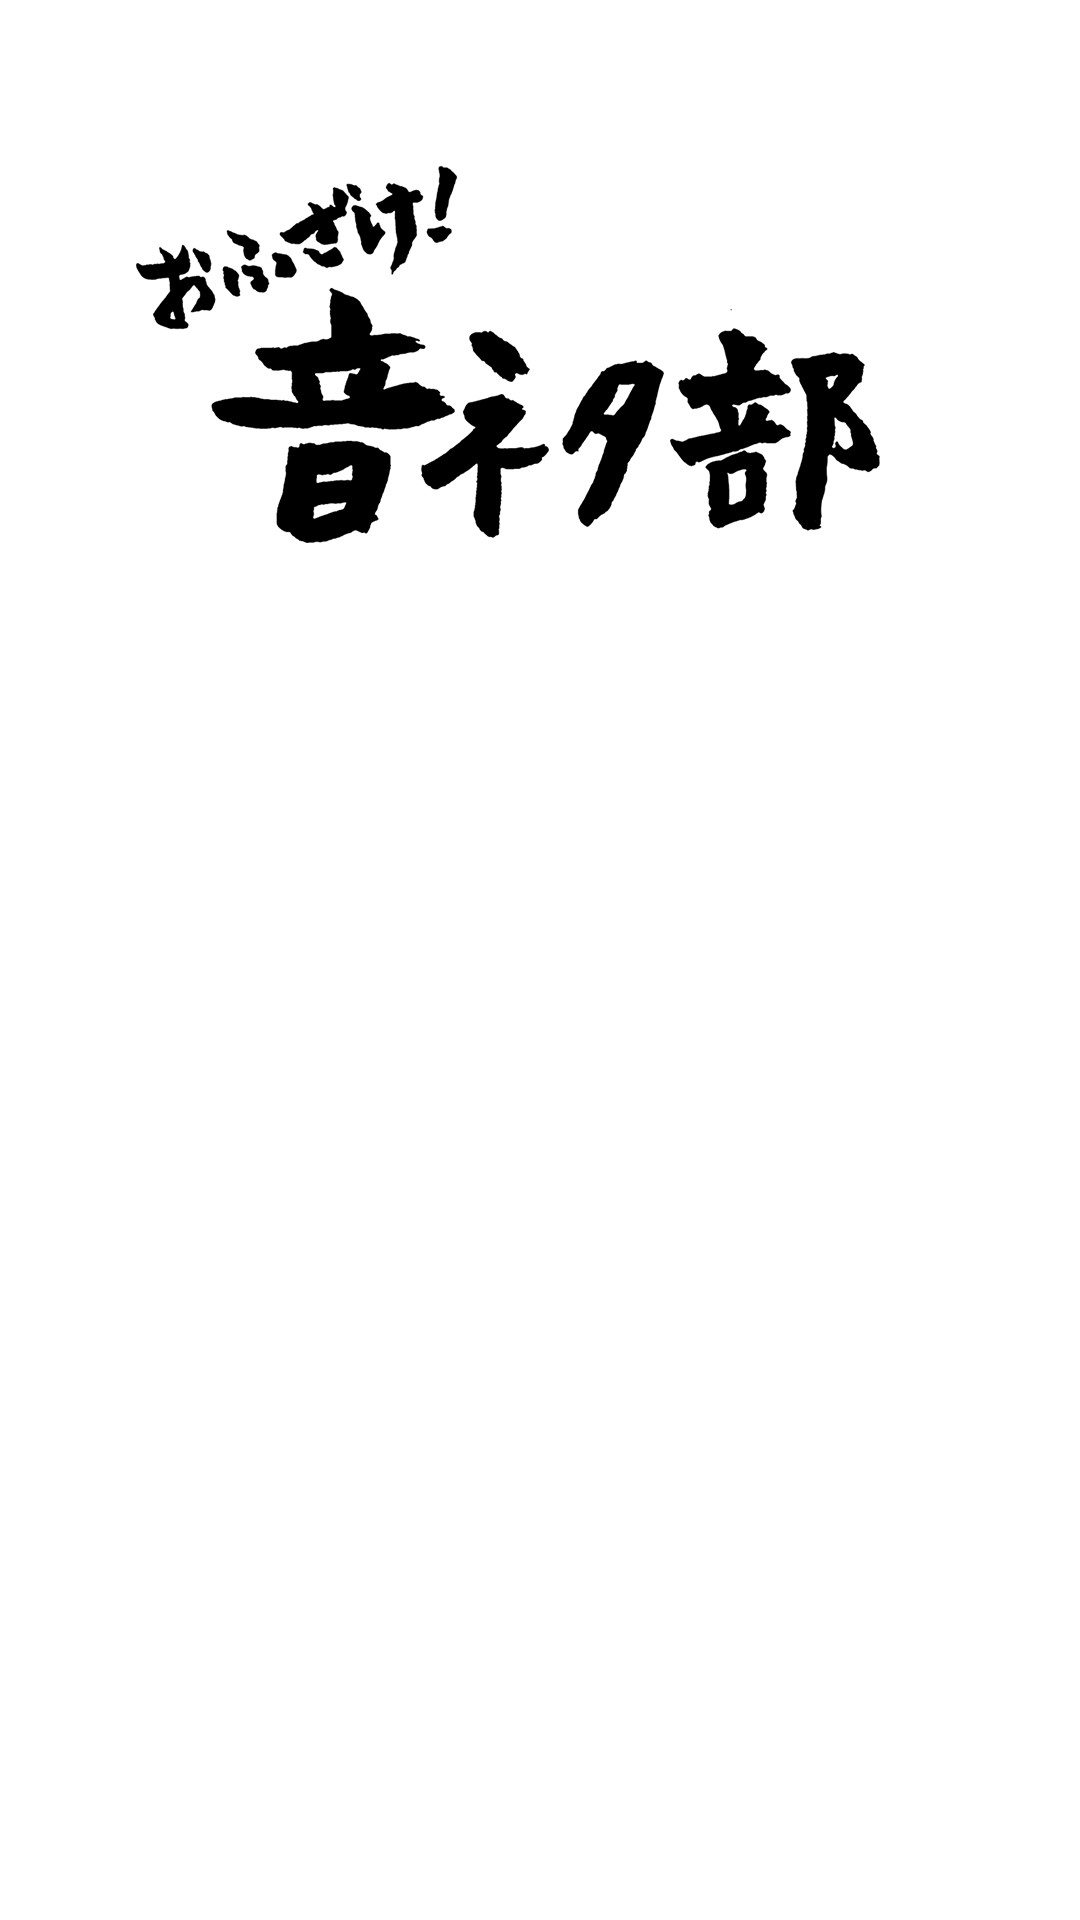 おふざけ!
音ネタ部